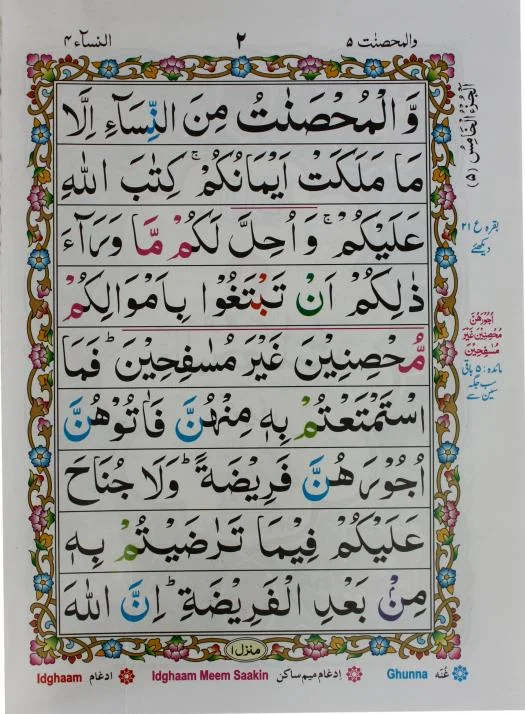 والمحصنٰت ۵
۲
النساء ۴
وَّالْمُحْصَنٰتُ مِنَ النِّسَآءِ اِلَّا
مَا مَلَكَتْ اَيْمَانُكُمْ ۚ كِتٰبَ اللّٰهِ
عَلَيْكُمْ ۚ وَاُحِلَّ لَكُمْ مَّا وَرَآءَ
ذٰلِكُمْ اَنْ تَبْتَغُوْا بِاَمْوَالِكُمْ
مُّحْصِنِيْنَ غَيْرَ مُسٰفِحِيْنَ ؕ فَمَا
اسْتَمْتَعْتُمْ بِهٖ مِنْهُنَّ فَاٰتُوْهُنَّ
اُجُوْرَهُنَّ فَرِيْضَةً ؕ وَلَا جُنَاحَ
عَلَيْكُمْ فِيْمَا تَرٰضَيْتُمْ بِهٖ
مِنْۢ بَعْدِ الْفَرِيْضَةِ ؕ اِنَّ اللّٰهَ
اَلْجُزْءُ الْخَامِسُ (۵)
بقرہ ع ۲۱
دیکھئے
اُجُوْرَهُنَّ
مُحْصِنِيْنَ غَيْرَ
مُسٰفِحِيْنَ
مائدہ : ۵ باقی
سب جگہ
سین سے
منزل ۱
Ghunna غُنّہ
Idghaam Meem Saakin اِدغام میم ساکن
Idghaam ادغام